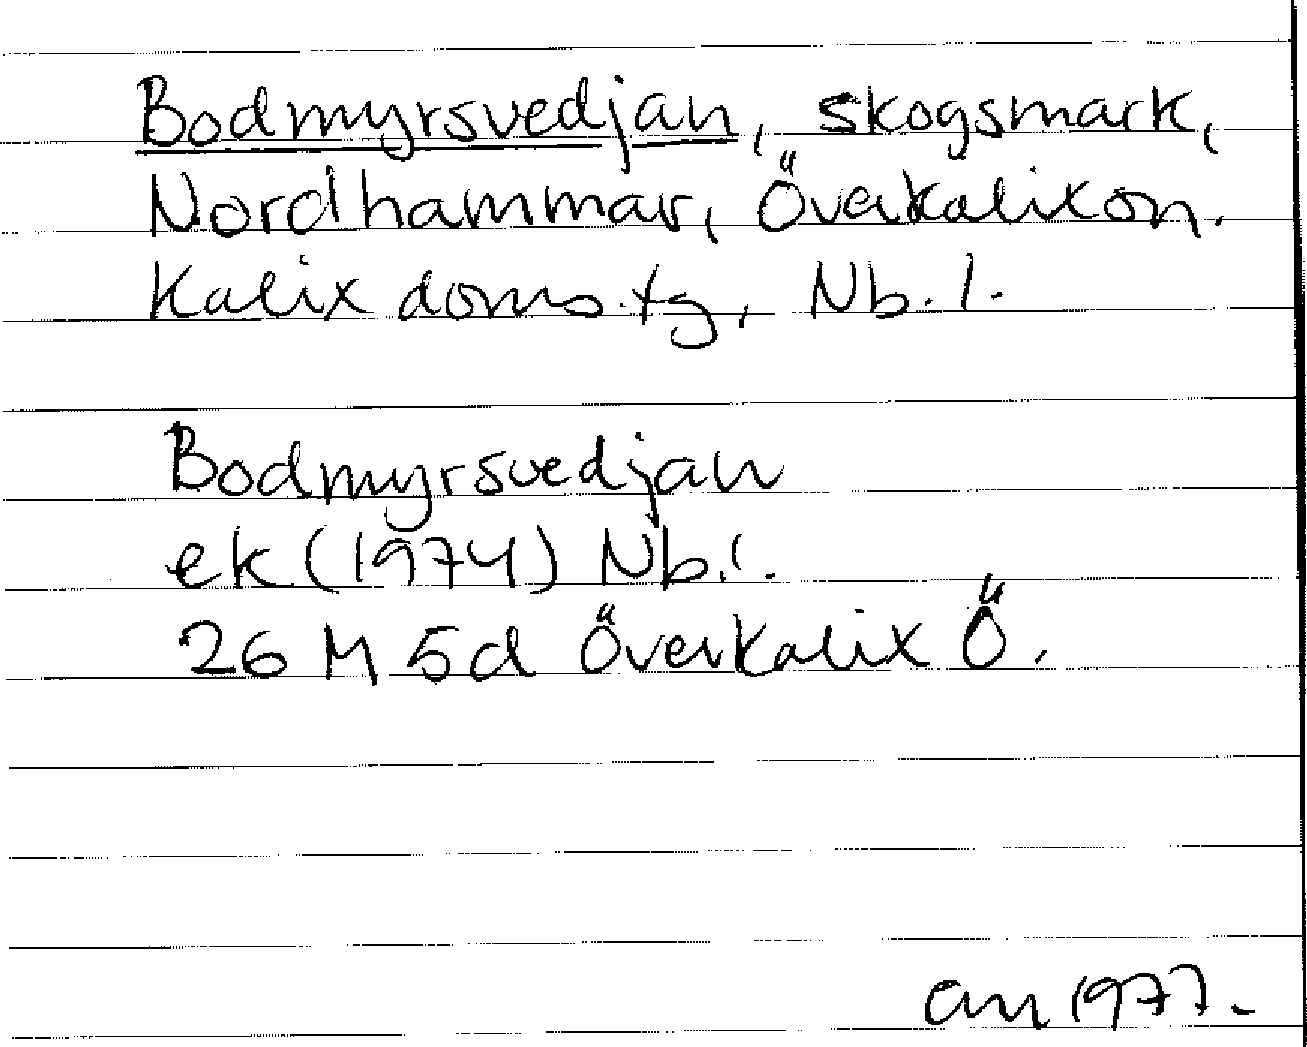 Bodmyrsvedjan, skogsmark,
Nordhammar, Överkalix sn.
Kalix doms. tg, Nb. l.
Bodmyrsvedjan
ek (1974) Nb. l.
26 M 5d Överkalix Ö.
1977.